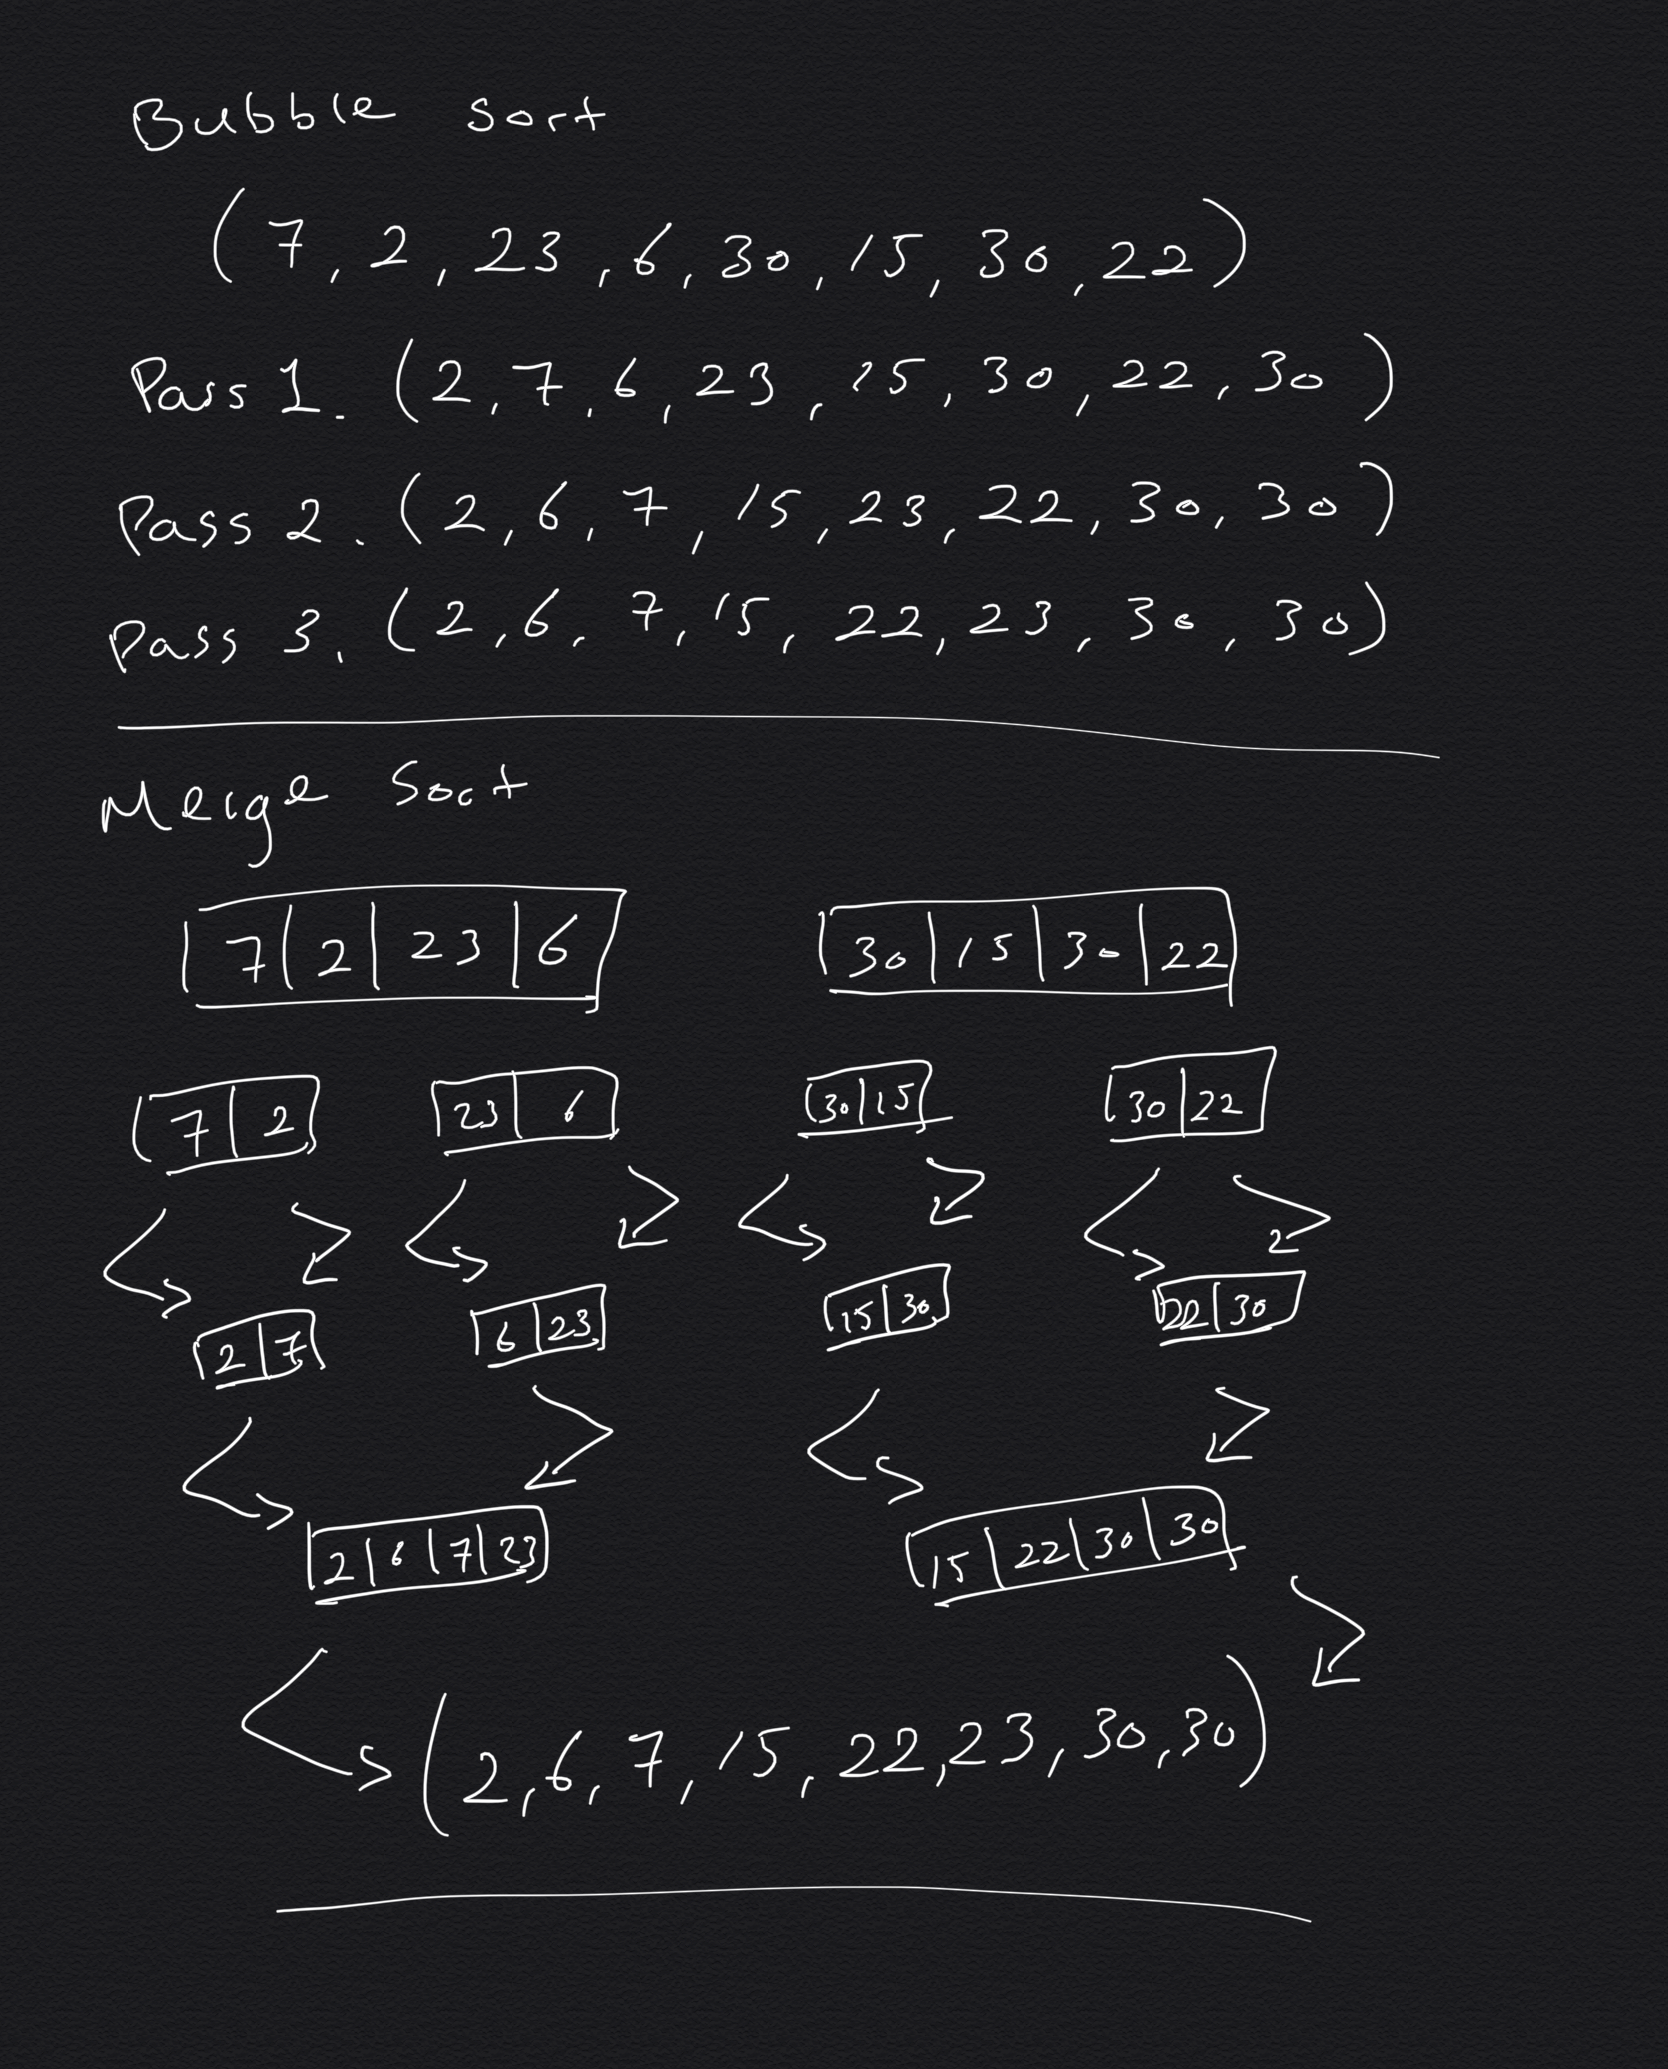 Bubble sort
(7, 2, 23, 6, 30, 15, 30, 22)
Pass 1. (2, 7, 6, 23, 15, 30, 22, 30)
Pass 2. (2, 6, 7, 15, 23, 22, 30, 30)
Pass 3. (2, 6, 7, 15, 22, 23, 30, 30)
Merge Sort
7|2|23|6 30|15|30|22
7|2 23|6 30|15 30|22
2|7 6|23 15|30 22|30
2|6|7|23 15|22|30|30
(2, 6, 7, 15, 22, 23, 30, 30)